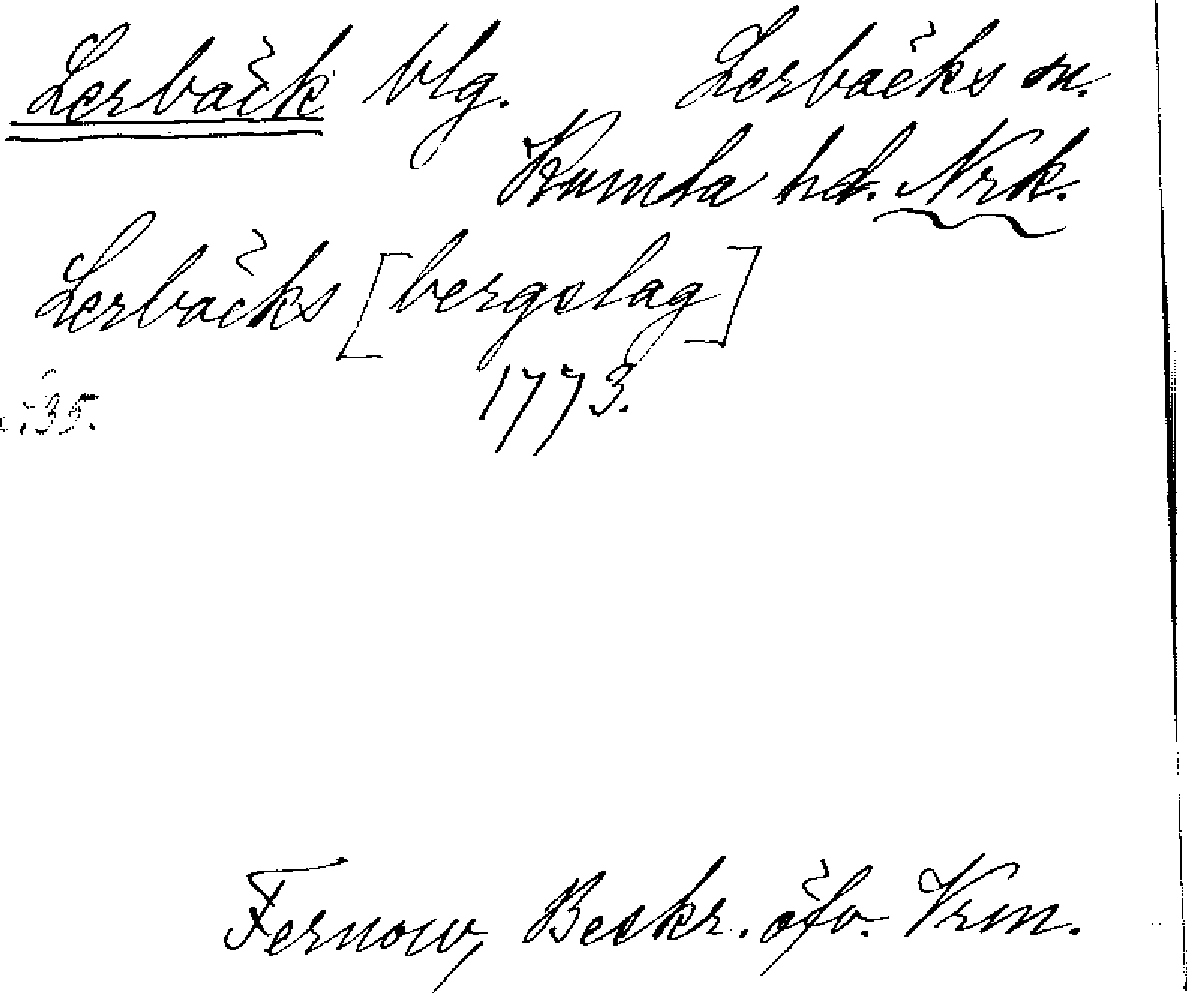 Lerbäck blg. Lerbäcks sn.
Kumla hd. Nrk.
Lerbäcks [bergslag]
1773.
Fernow, Beskr. öfv. Vrm.